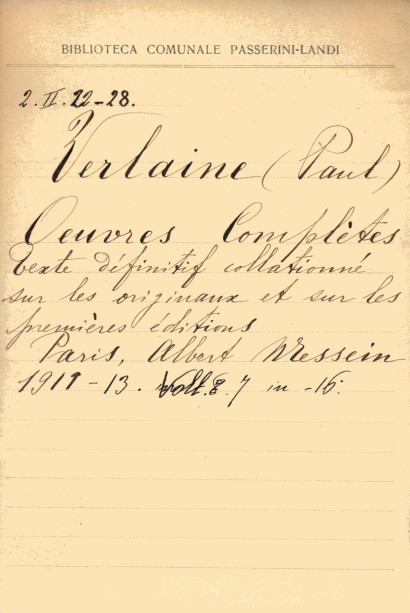 BIBLIOTECA COMUNALE PASSERINI-LANDI
2. II. 22-28.
Verlaine (Paul)
Oeuvres Complètes
texte définitif collationné
sur les originaux et sur les
premières éditions
Paris, Albert Messein
1911-13. Voll. 7 in -16.